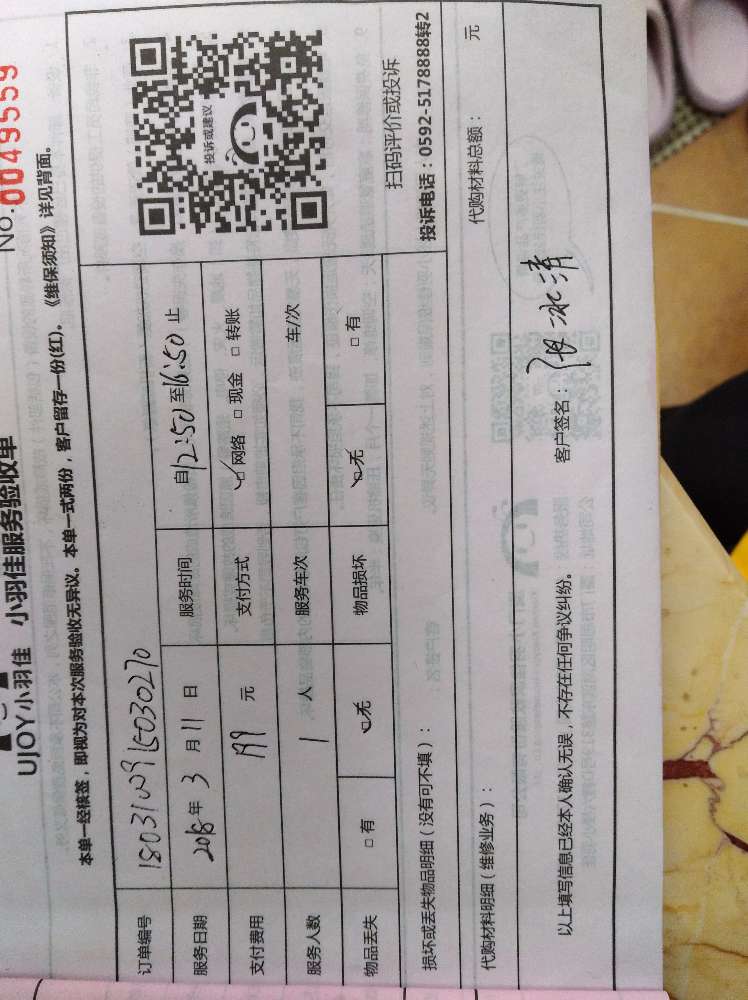 UJOY小羽佳 小羽佳服务验收单
No.0049559
本单一经核签，即视为对本次服务验收无异议。本单一式两份，客户留存一份(红)。《维保须知》详见背面。
订单编号
服务日期 2018年 3 月 11 日 服务时间 自12:50至16:50止
支付费用 199 元 支付方式 ☑网络 □ 现金 □ 转账
服务人数 1 人 服务车次 车/次
物品丢失 □ 有 ☑无 物品损坏 ☑无 □ 有
投诉或建议
扫码评价或投诉
投诉电话：0592-5178888转2
损坏或丢失物品明细（没有可不填）：
代购材料明细（维修业务）： 代购材料总额： 元
以上填写信息已经本人确认无误，不存在任何争议纠纷。 客户签名：